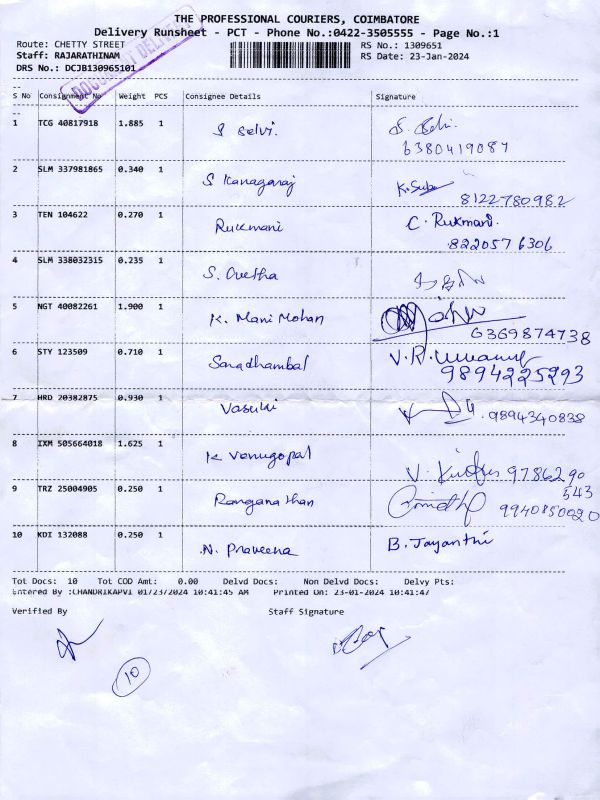 THE PROFESSIONAL COURIERS, COIMBATORE
Delivery Runsheet - PCT - Phone No.:0422-3505555 - Page No.:1
Route: CHETTY STREET RS No.: 1309651
Staff: RAJARATHINAM RS Date: 23-Jan-2024
DRS No.: DCJB130965101
DOCUMENT DELIVERY
S No Consignment No Weight PCS Consignee Details Signature
1 TCG 40817918 1.885 1 S Selvi. S. Selvi.
6380419087
2 SLM 337981865 0.340 1 S Kanagaraj K. 8122780982
3 TEN 104622 0.270 1 Rukmani C. Rukmani.
8220576306
4 SLM 338032315 0.235 1 S.
5 NGT 40082261 1.900 1 K. Mani Mohan
6369874738
6 STY 123509 0.710 1 Saradhambal V.R.
9894225293
7 HRD 20382875 0.930 1 Vasuki 9894340838
8 IXM 505664018 1.625 1 K Venugopal V. 97862 90
543
9 TRZ 25004905 0.250 1 Ranganathan 9940850020
10 KDI 132088 0.250 1 N. Praveena B. Jayanthi
Tot Docs: 10 Tot COD Amt: 0.00 Delvd Docs: Non Delvd Docs: Delvy Pts:
Entered By :CHANDRIKAPVI 01/23/2024 10:41:45 AM Printed On: 23-01-2024 10:41:47
Verified By Staff Signature
10